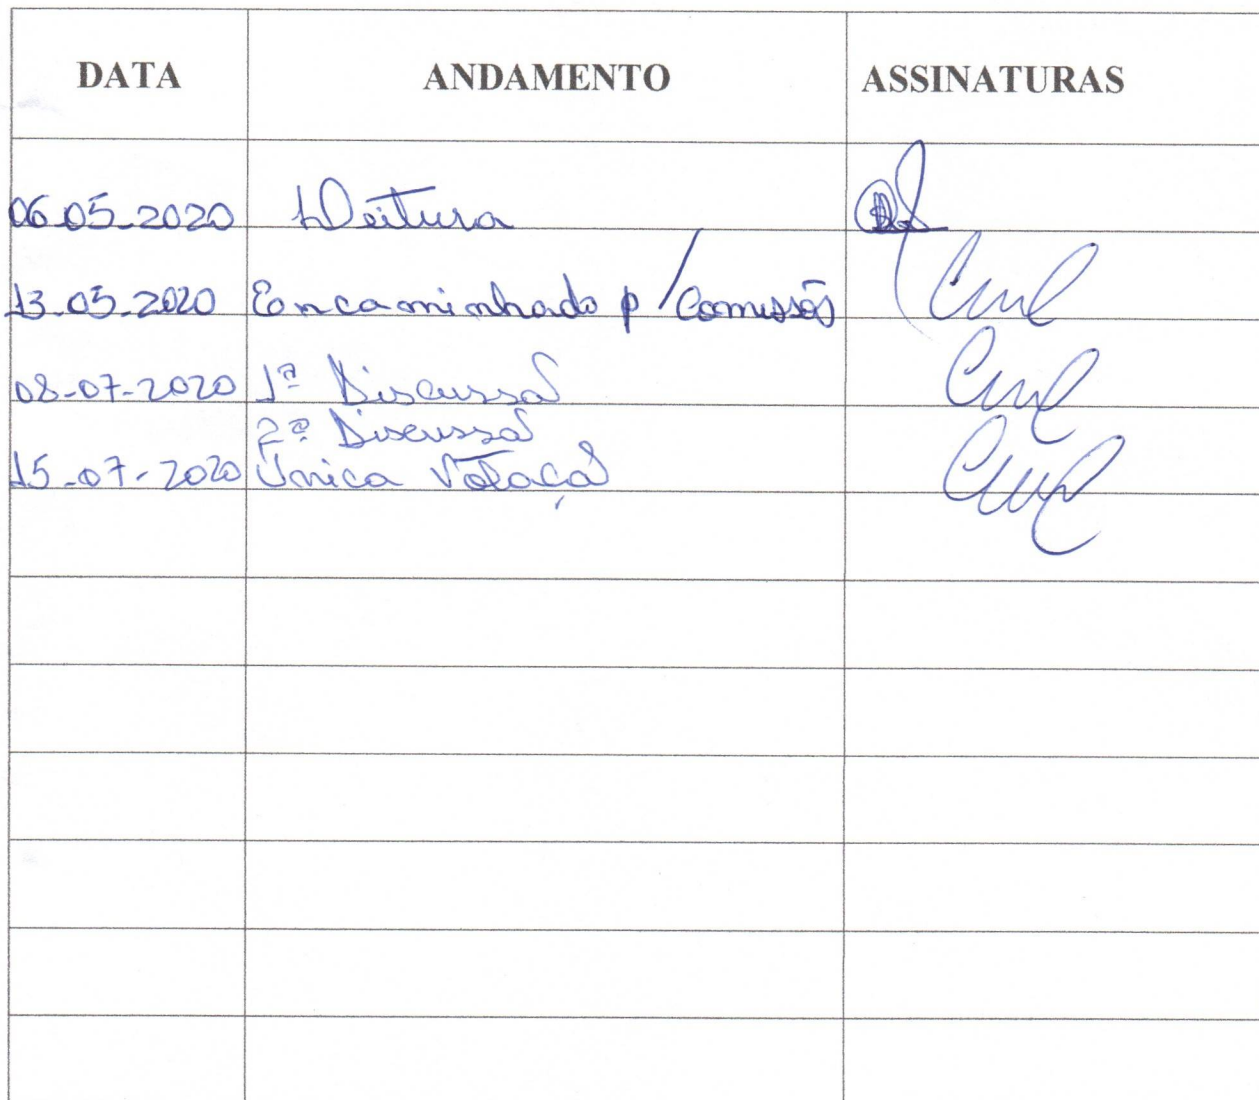 DATA ANDAMENTO ASSINATURAS
06.05.2020 Leitura
13.05.2020 Encaminhado p/ Comissão
08-07-2020 1ª Discussão
2ª Discussão
15-07-2020 Única Votação